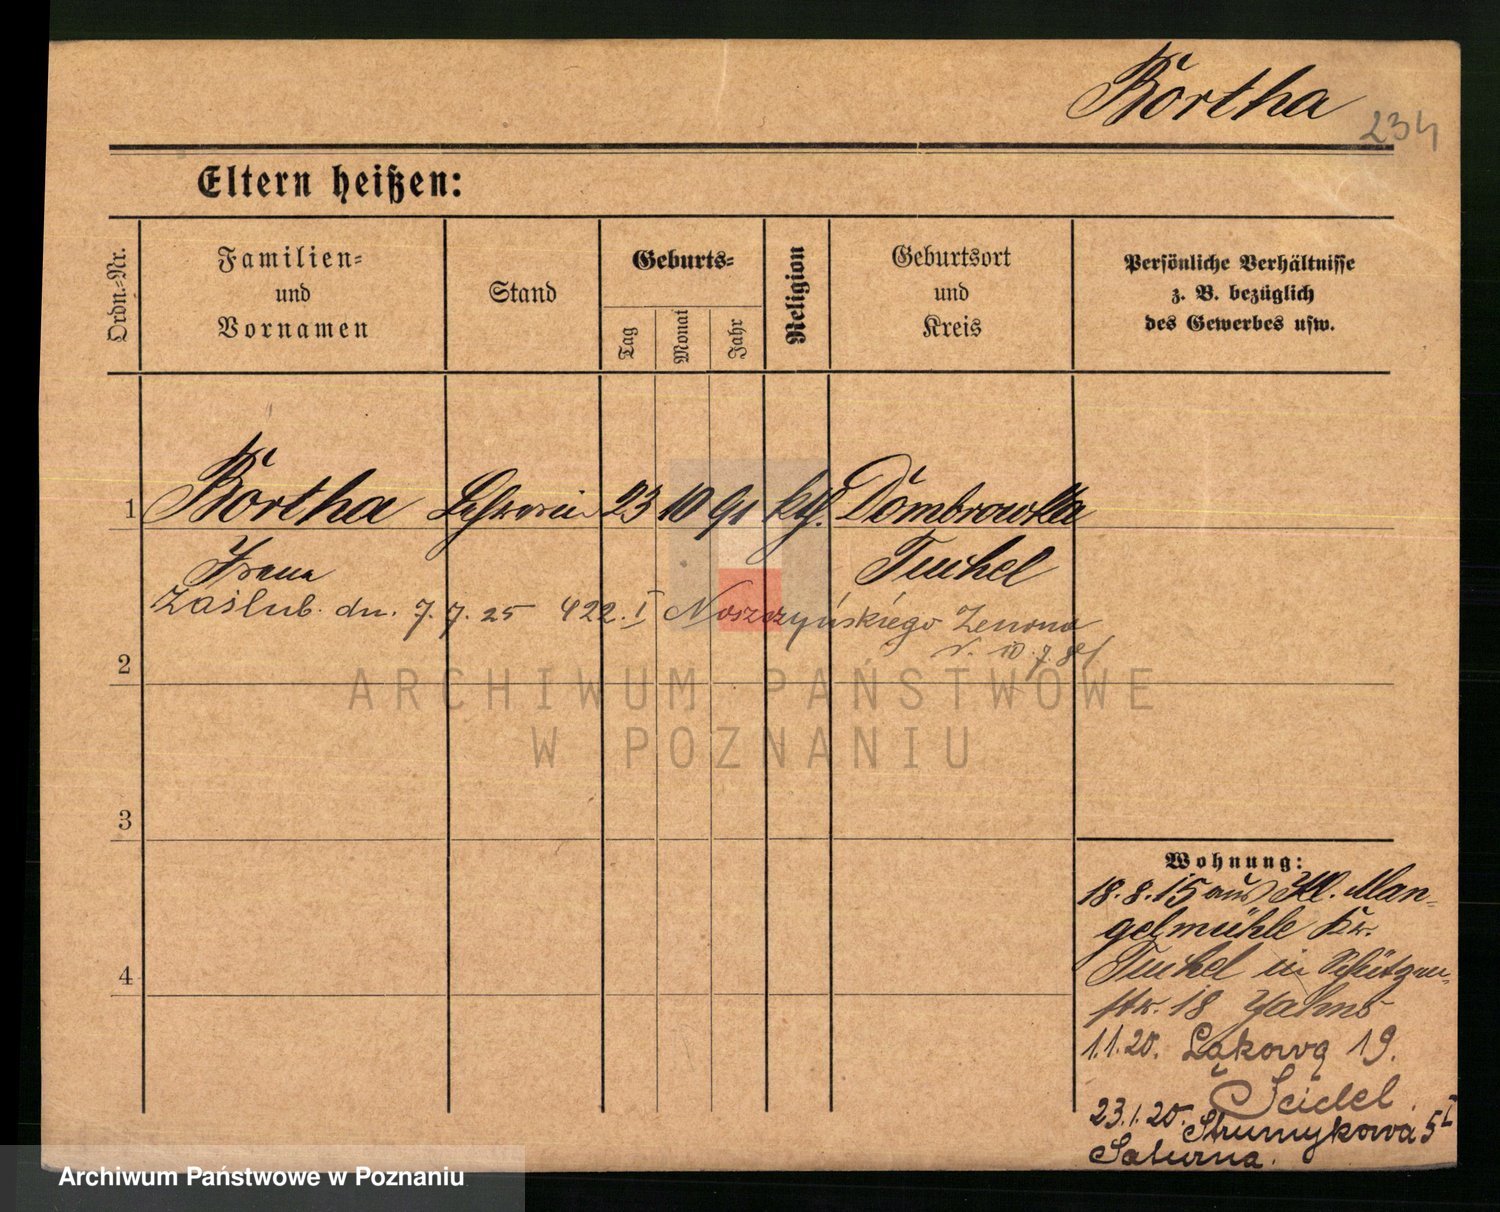 Börtha
234
Eltern heißen:
Ordn.-Nr.
Familien-
und
Vornamen
Stand
Geburts-
Tag
Monat
Jahr
Religion
Geburtsort
und
Kreis
Persönliche Verhältnisse
z. B. bezüglich
des Gewerbes usw.
1 Börtha 23 10 91 kth. Dombrowka
Tuchel
Zaślub. dn. 7.7.25 422.I Noszczyńskiego Zenona
10.7.81
2
3
4
Wohnung:
18.8.15 aus Kl. Man-
gelmühle Kr.
Tuchel in Schützen-
str. 18
1.1.20. Łąkowa 19.
Seidel.
23.1.20. Strumykowa 5 I
Saturna.
ARCHIWUM PAŃSTWOWE
W POZNANIU
Archiwum Państwowe w Poznaniu